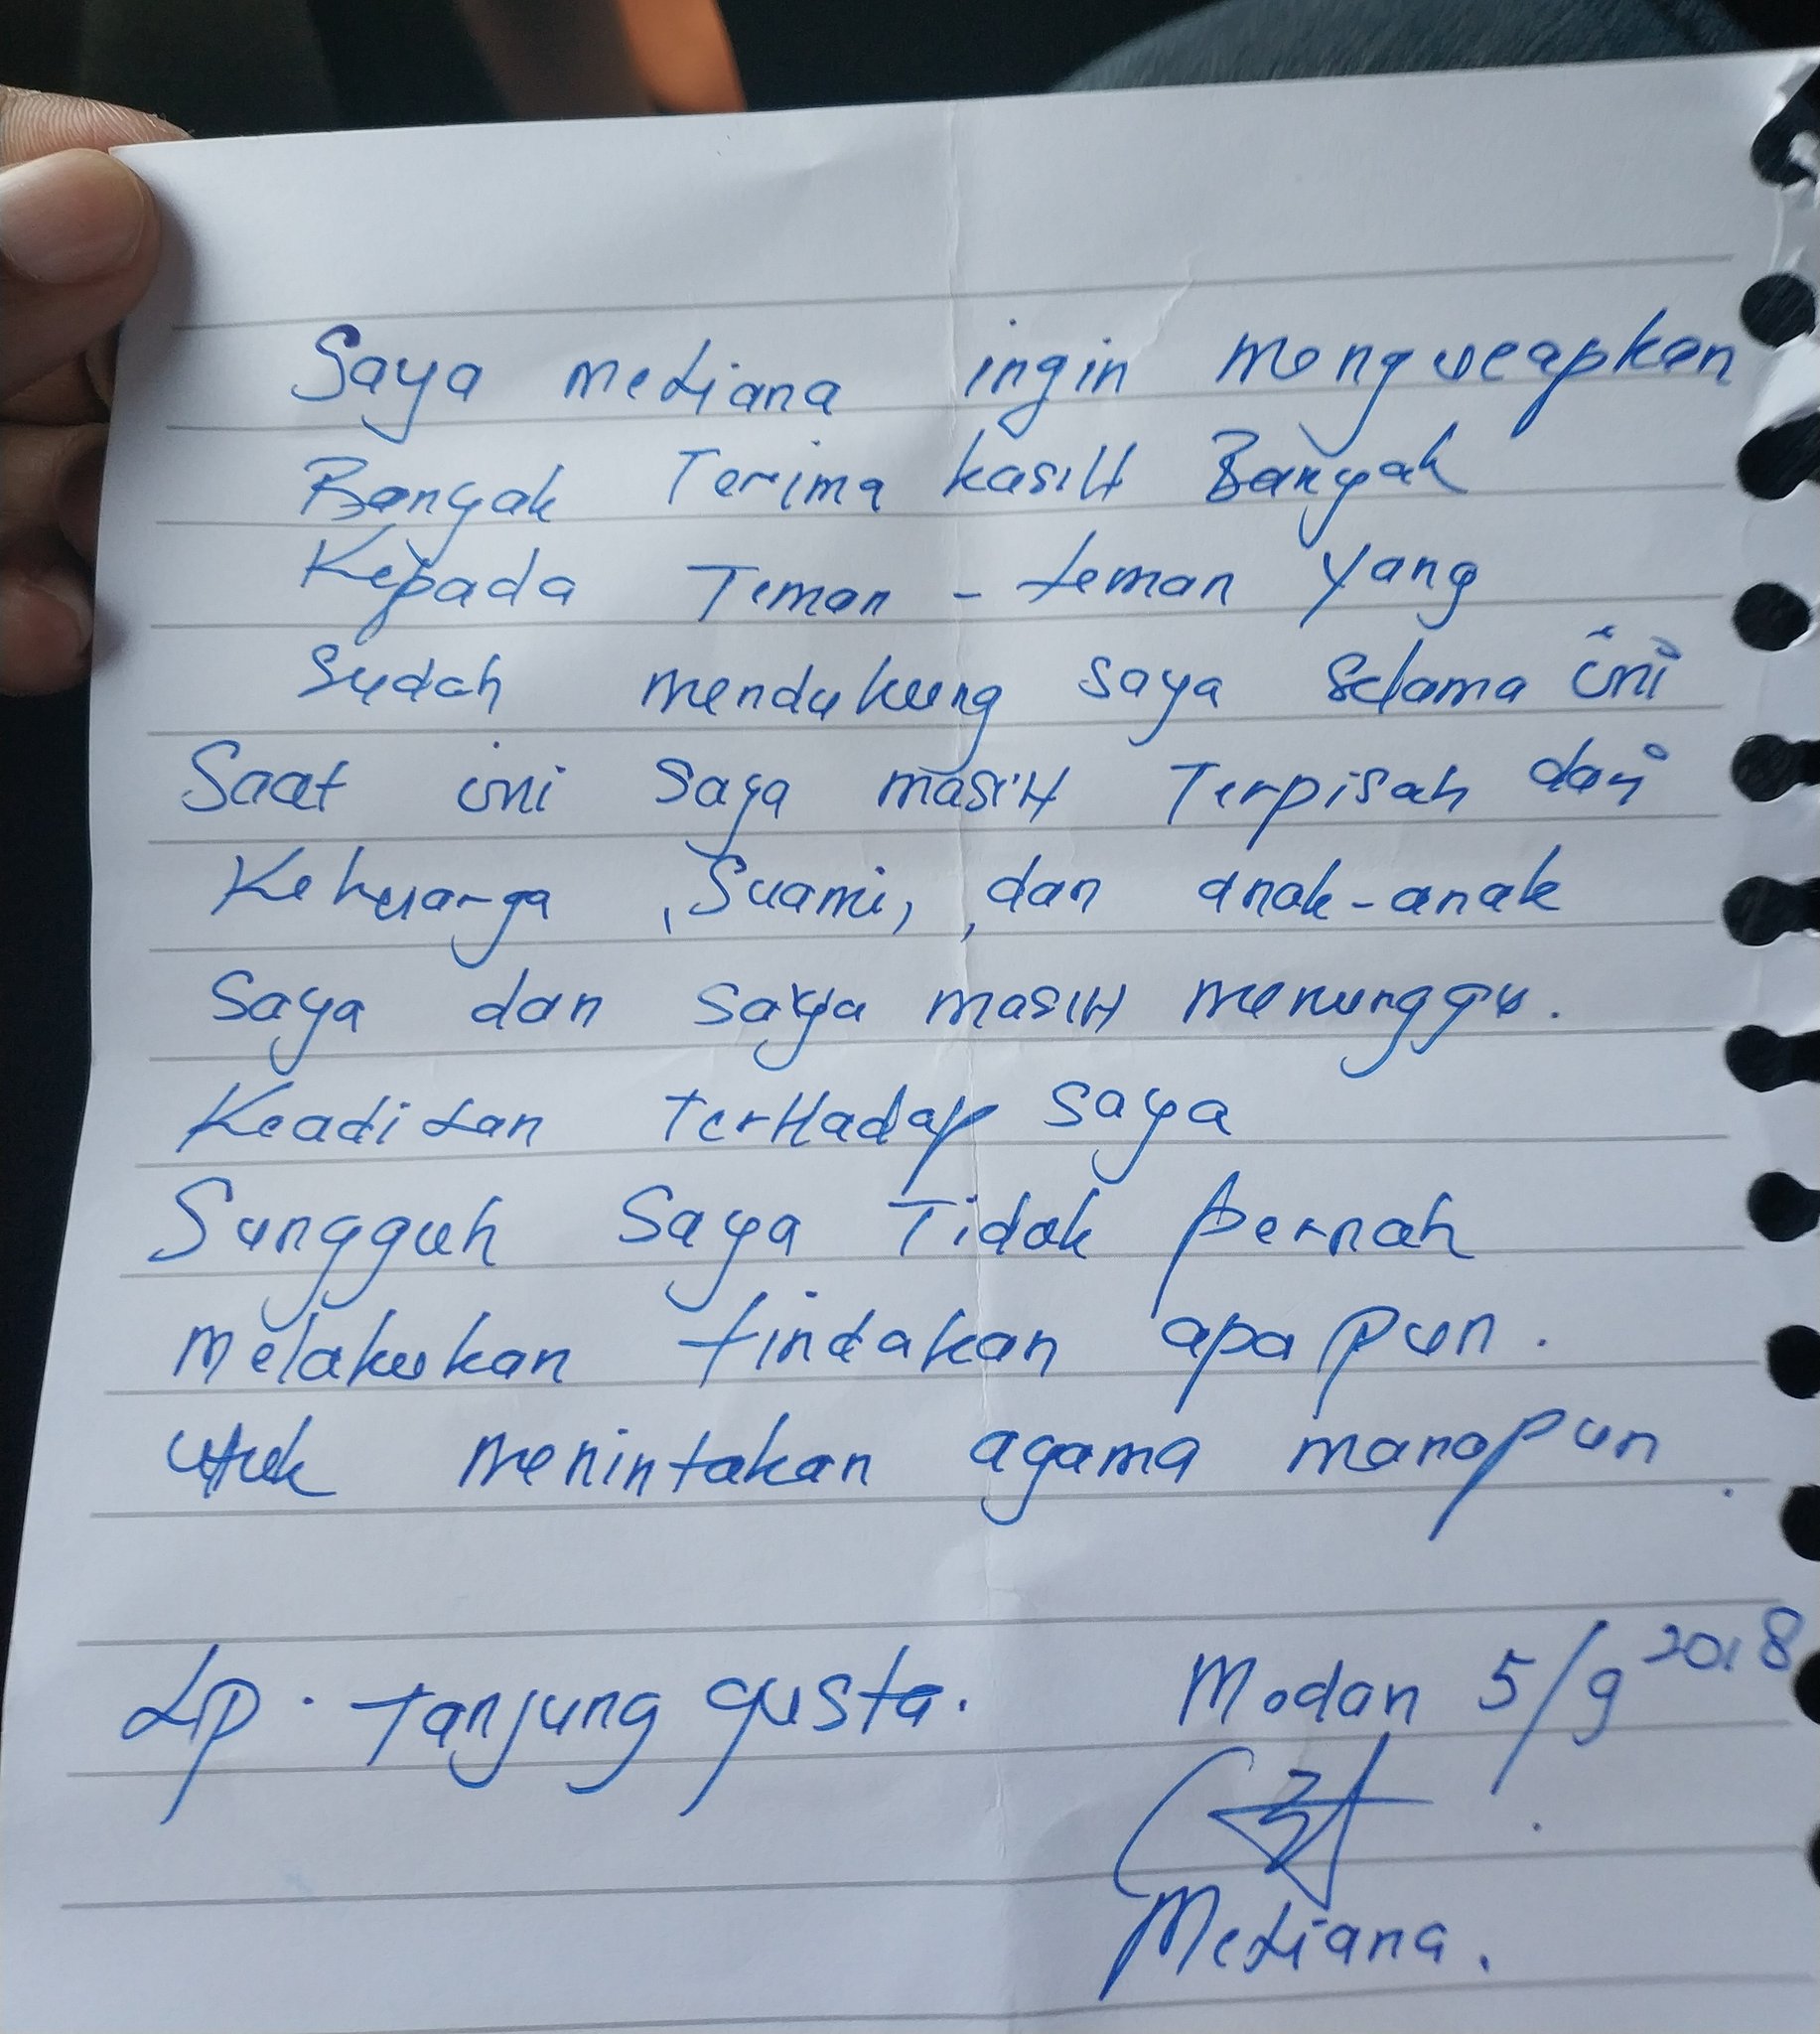 Saya meliana ingin mengucapkan
Banyak Terima kasiH Banyak
Kepada Teman - teman yang
Sudah mendukung saya selama ini
Saat ini saya masiH Terpisah dari
Keluarga , Suami, , dan anak-anak
Saya dan saya masiH menunggu.
Keadilan terHadap saya
Sungguh Saya Tidak pernah
melakukan tindakan apapun.
utuk menintakan agama manapun.
Lp. Tanjung gusta. Medan 5/9 2018
Meliana.